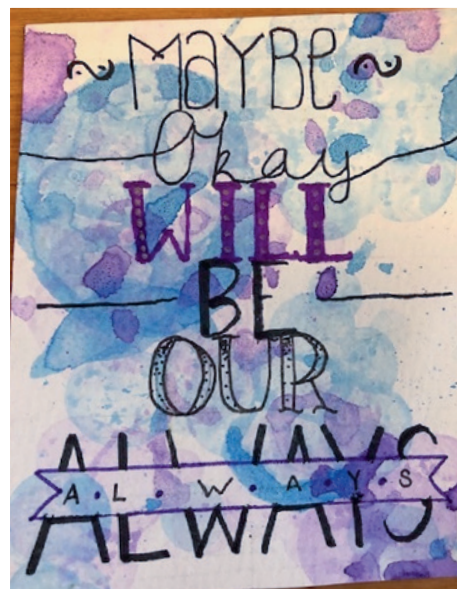 MaYBe
Okay
WILL
BE
OUR
ALWAYS
A.L.W.A.Y.S